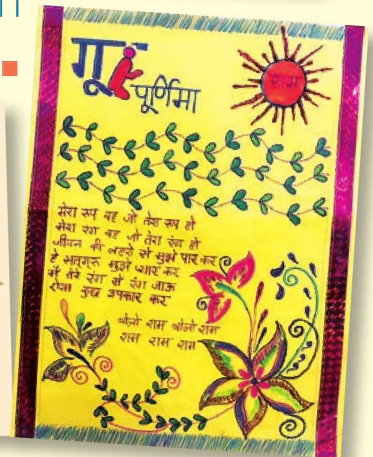 गुरु
पूर्णिमा
राम
मेरा रूप वह जो तेरा रूप हो
मेरा रंग वह जो तेरा रंग हो
जीवन की लहरों से मुझे पार कर
हे सतगुरु मुझे प्यार कर
मैं तेरे रंग से रंग जाऊ
ऐसा कुछ उपकार कर
बोलो राम बोलो राम
राम राम राम